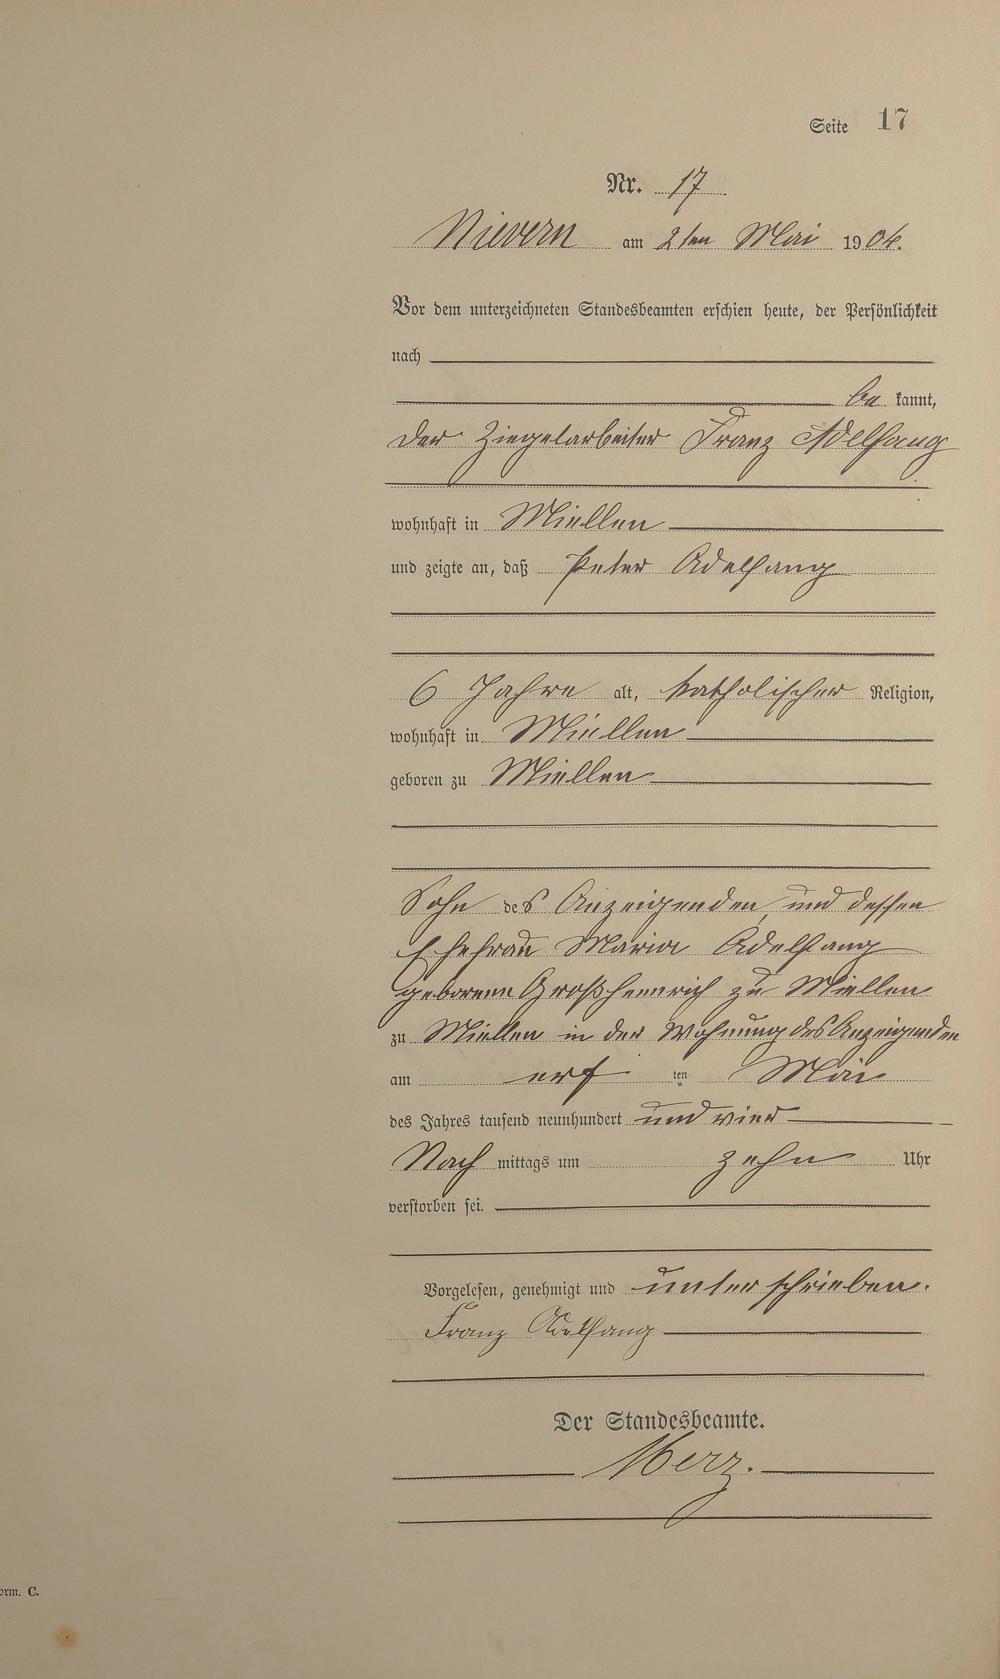 Seite 17
Nr. 17
Nievern am 2ten Mai 1904.
Vor dem unterzeichneten Standesbeamten erschien heute, der Persönlichkeit
nach
be kannt,
der Ziegelarbeiter Franz Adelfang
wohnhaft in Miellen
und zeigte an, daß Peter Adelfang
6 Jahre alt, katholischer Religion,
wohnhaft in Miellen
geboren zu Miellen
Sohn des Anzeigenden, und dessen
Ehefrau Maria Adelfang
geborene Großhennrich zu Miellen
zu Miellen in der Wohnung des Anzeigenden
am ten Mai
des Jahres tausend neunhundert und vier
Nach mittags um zehn Uhr
verstorben sei.
Vorgelesen, genehmigt und unterschrieben.
Franz Adelfang
Der Standesbeamte.
Merz.
orm. C.